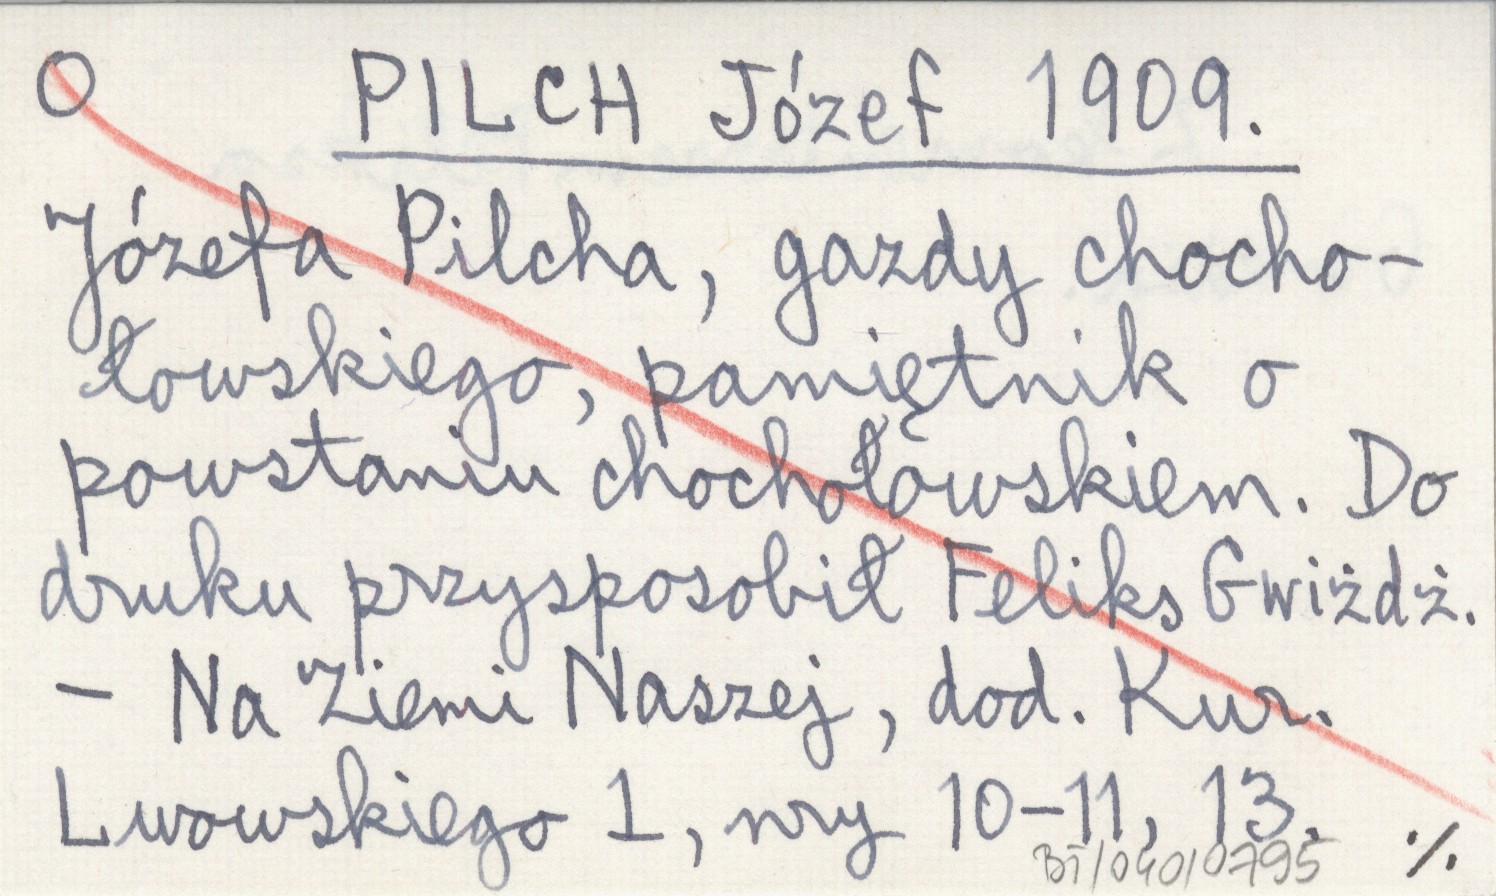 O PILCH Józef 1909.
Józefa Pilcha, gazdy chocho-
łowskiego, pamiętnik o
powstaniu chochołowskiem. Do
druku przysposobił Feliks Gwiżdż.
– Na Ziemi Naszej, dod. Kur.
Lwowskiego 1, nry 10–11, 13.
BT/040/0795 ./.